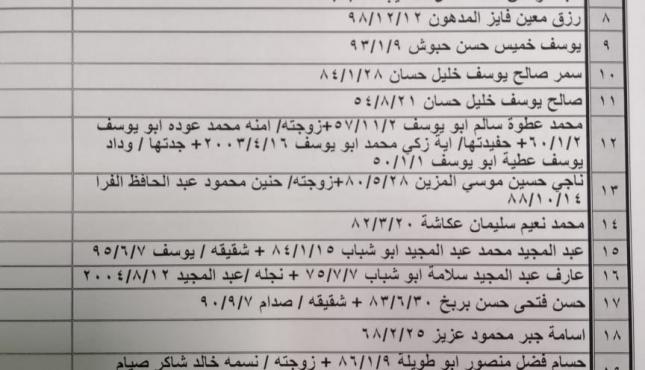 ٨ رزق معين فايز المدهون ٩٨/١٢/١٢
٩ يوسف خميس حسن حبوش ٩٣/١/٩
١٠ سمر صالح يوسف خليل حسان ٨٤/١/٢٨
١١ صالح يوسف خليل حسان ٥٤/٨/٢١
محمد عطوة سالم ابو يوسف ٥٧/١١/٢+زوجته/ امنه محمد عوده ابو يوسف
١٢ ٦٠/١/٢+ حفيدتها/ اية زكي محمد ابو يوسف ٢٠٠٣/٤/١٦+ جدتها / وداد
يوسف عطية ابو يوسف ٥٠/١/١
١٣ ناجي حسين موسي المزين ٨٠/٥/٢٨+زوجته/ حنين محمود عبد الحافظ الفرا
٨٨/١٠/١٤
١٤ محمد نعيم سليمان عكاشة ٨٢/٣/٢٠
١٥ عبد المجيد محمد عبد المجيد ابو شباب ٨٤/١/١٥ + شقيقه / يوسف ٩٥/٦/٧
١٦ عارف عبد المجيد سلامة ابو شباب ٧٥/٧/٧ + نجله /عبد المجيد ٢٠٠٤/٨/١٢
١٧ حسن فتحى حسن بربخ ٨٣/٦/٣٠ + شقيقه / صدام ٩٠/٩/٧
١٨ اسامة جبر محمود عزيز ٦٨/٢/٢٥
حسام فضل منصور ابو طويلة ٨٦/١/٩ + زوجته / نسمه خالد شاكر صيام